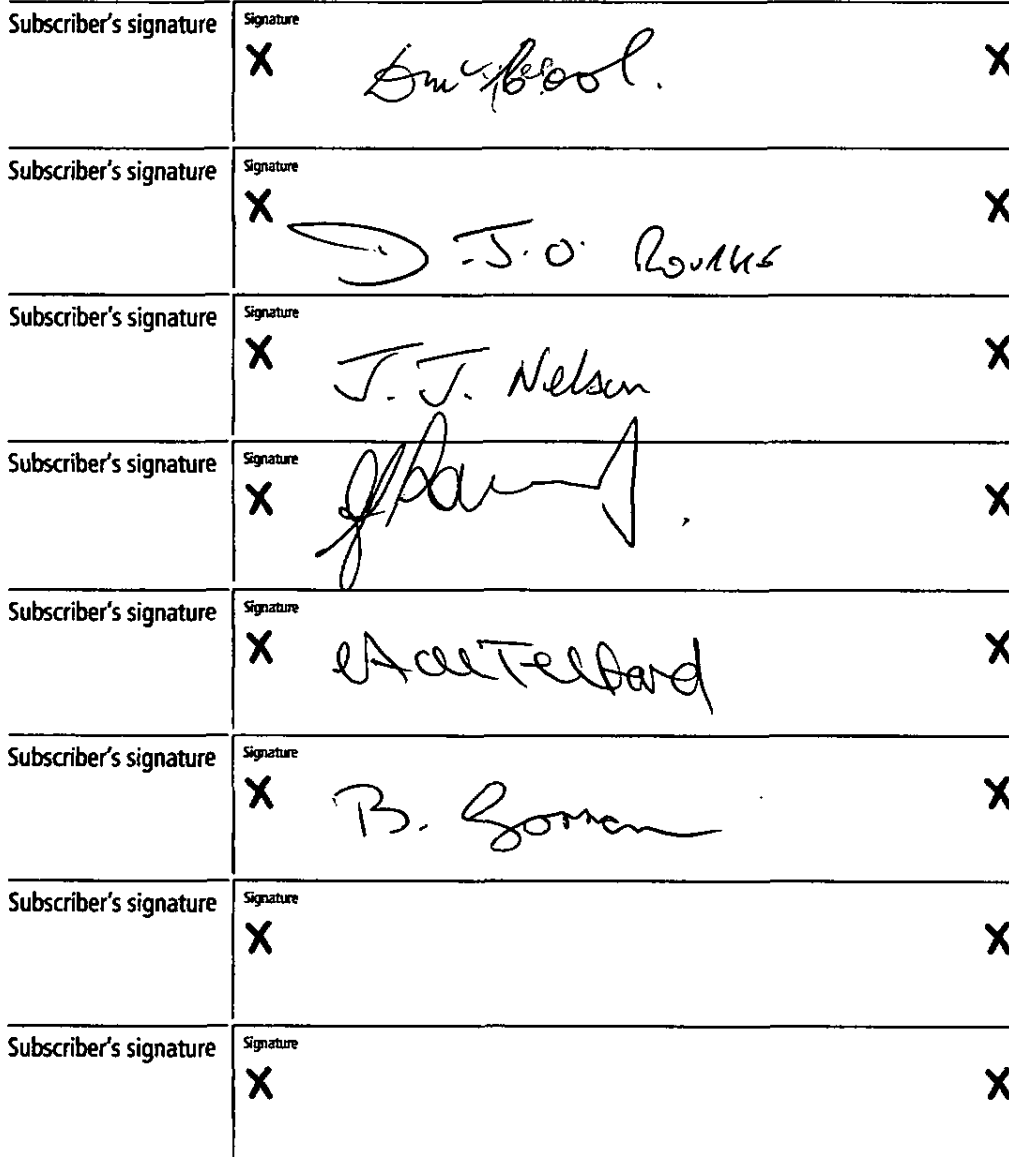 Subscriber's signature
Signature
X X
Subscriber's signature
Signature
X X
D.J.O. Rourke
Subscriber's signature
Signature
X X
J.J. Nelson
Subscriber's signature
Signature
X X
Subscriber's signature
Signature
X X
Subscriber's signature
Signature
X X
B.
Subscriber's signature
Signature
X X
Subscriber's signature
Signature
X X